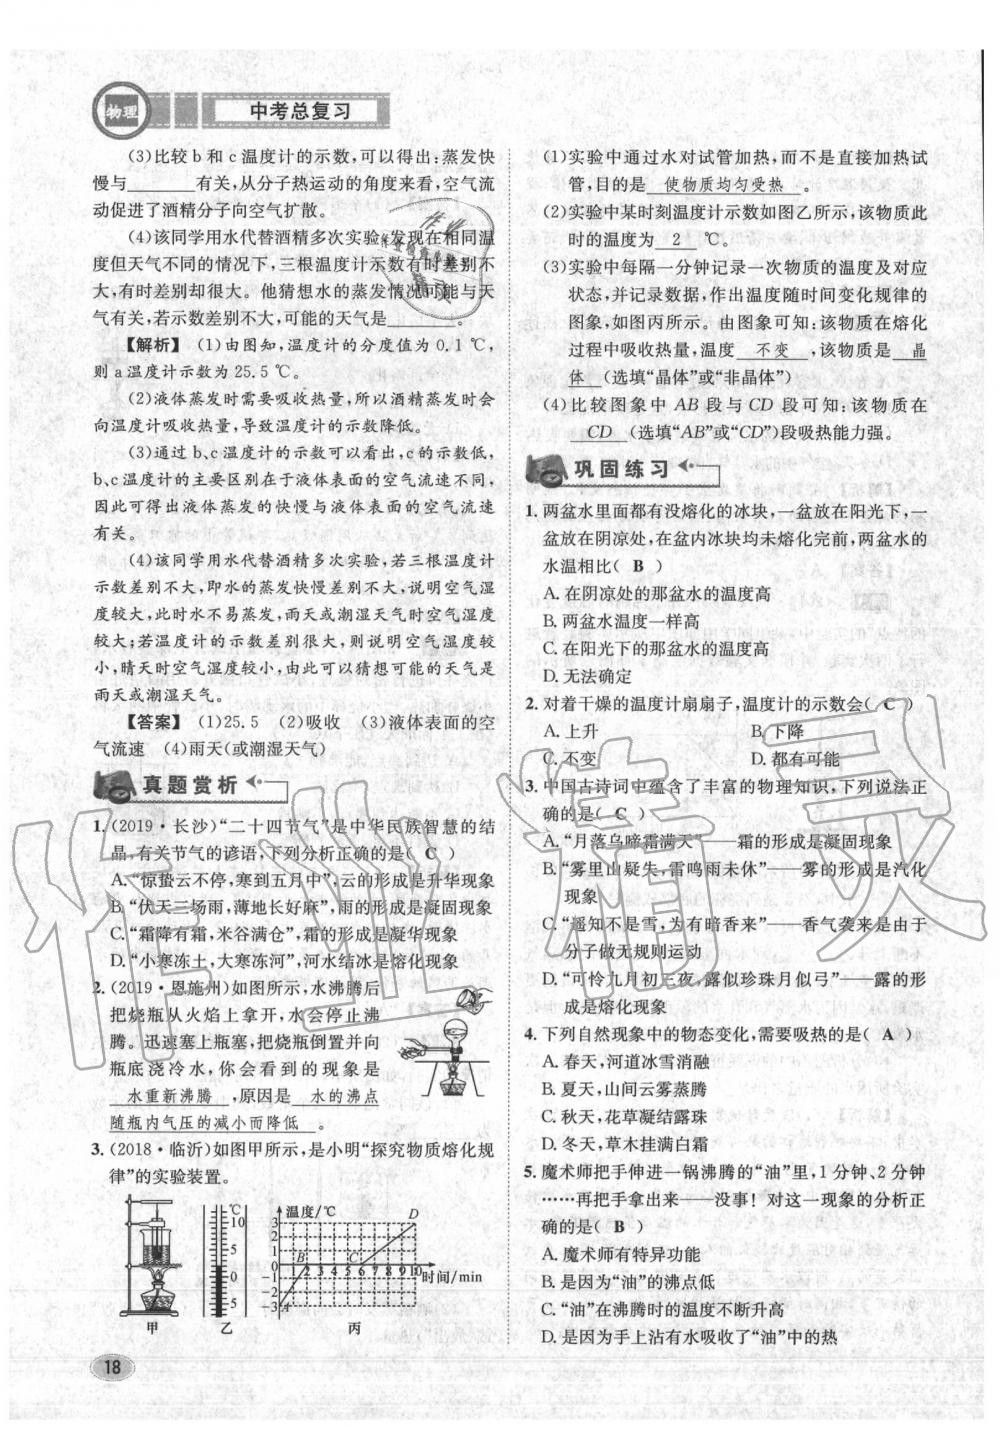 物理
中考总复习
(3)比较 b 和 c 温度计的示数,可以得出:蒸发快
慢与________有关,从分子热运动的角度来看,空气流
动促进了酒精分子向空气扩散。
(4)该同学用水代替酒精多次实验,发现在相同温
度但天气不同的情况下,三根温度计示数有时差别不
大,有时差别却很大。他猜想水的蒸发情况可能与天
气有关,若示数差别不大,可能的天气是________。
【解析】 (1)由图知,温度计的分度值为 0.1 ℃,
则 a 温度计示数为 25.5 ℃。
(2)液体蒸发时需要吸收热量,所以酒精蒸发时会
向温度计吸收热量,导致温度计的示数降低。
(3)通过 b、c 温度计的示数可以看出,c 的示数低,
温度计的主要区别在于液体表面的空气流速不同,因
此可得出液体蒸发的快慢与液体表面的空气流速
有关。
(4)该同学用水代替酒精多次实验,若三根温度计
示数差别不大,即水的蒸发快慢差别不大,说明空气湿
度较大,此时水不易蒸发,雨天或潮湿天气时空气湿度
较大;若温度计的示数差别很大,则说明空气湿度较
小,晴天时空气湿度较小,由此可以猜想可能的天气是
雨天或潮湿天气。
【答案】 (1)25.5 (2)吸收 (3)液体表面的空
气流速 (4)雨天(或潮湿天气)
真题赏析
1.(2019·长沙)“二十四节气”是中华民族智慧的结
晶,有关节气的谚语,下列分析正确的是( C )
A.“惊蛰云不停,寒到五月中”,云的形成是升华现象
B.“伏天三场雨,薄地长好麻”,雨的形成是凝固现象
C.“霜降有霜,米谷满仓”,霜的形成是凝华现象
D.“小寒冻土,大寒冻河”,河水结冰是熔化现象
2.(2019·恩施州)如图所示,水沸腾后
把烧瓶从火焰上拿开,水会停止沸
腾。迅速塞上瓶塞,把烧瓶倒置并向
瓶底浇冷水,你会看到的现象是
水重新沸腾 ,原因是 水的沸点
随瓶内气压的减小而降低 。
3.(2018·临沂)如图甲所示,是小明“探究物质熔化规
律”的实验装置。
℃
10
5
0
5
温度/℃
3
2
1
0
-1
-2
-3
A
B
C
D
1 2 3 4 5 6 7 8 9 10
时间/min
甲 乙 丙
18
(1)实验中通过水对试管加热,而不是直接加热试
管,目的是 使物质均匀受热 。
(2)实验中某时刻温度计示数如图乙所示,该物质此
时的温度为 2 ℃。
(3)实验中每隔一分钟记录一次物质的温度及对应
状态,并记录数据,作出温度随时间变化规律的
图象,如图丙所示。由图象可知:该物质在熔化
过程中吸收热量,温度 不变 ,该物质是 晶
体 (选填“晶体”或“非晶体”)
(4)比较图象中 AB 段与 CD 段可知:该物质在
CD (选填“AB”或“CD”)段吸热能力强。
巩固练习
1.两盆水里面都有没熔化的冰块,一盆放在阳光下,一
盆放在阴凉处,在盆内冰块均未熔化完前,两盆水的
水温相比( B )
A. 在阴凉处的那盆水的温度高
B. 两盆水温度一样高
C. 在阳光下的那盆水的温度高
D. 无法确定
2. 对着干燥的温度计扇扇子,温度计的示数会( C )
A. 上升 B. 下降
C. 不变 D. 都有可能
3. 中国古诗词中蕴含了丰富的物理知识,下列说法正
确的是( C )
A.“月落乌啼霜满天”——霜的形成是凝固现象
B.“雾里山疑失,雷鸣雨未休”——雾的形成是汽化
现象
C.“遥知不是雪,为有暗香来”——香气袭来是由于
分子做无规则运动
D.“可怜九月初三夜,露似珍珠月似弓”——露的形
成是熔化现象
4. 下列自然现象中的物态变化,需要吸热的是( A )
A. 春天,河道冰雪消融
B. 夏天,山间云雾蒸腾
C. 秋天,花草凝结露珠
D. 冬天,草木挂满白霜
5. 魔术师把手伸进一锅沸腾的“油”里,1 分钟、2 分钟
……再把手拿出来——没事!对这一现象的分析正
确的是( B )
A. 魔术师有特异功能
B. 是因为“油”的沸点低
C.“油”在沸腾时的温度不断升高
D. 是因为手上沾有水吸收了“油”中的热
作业精灵